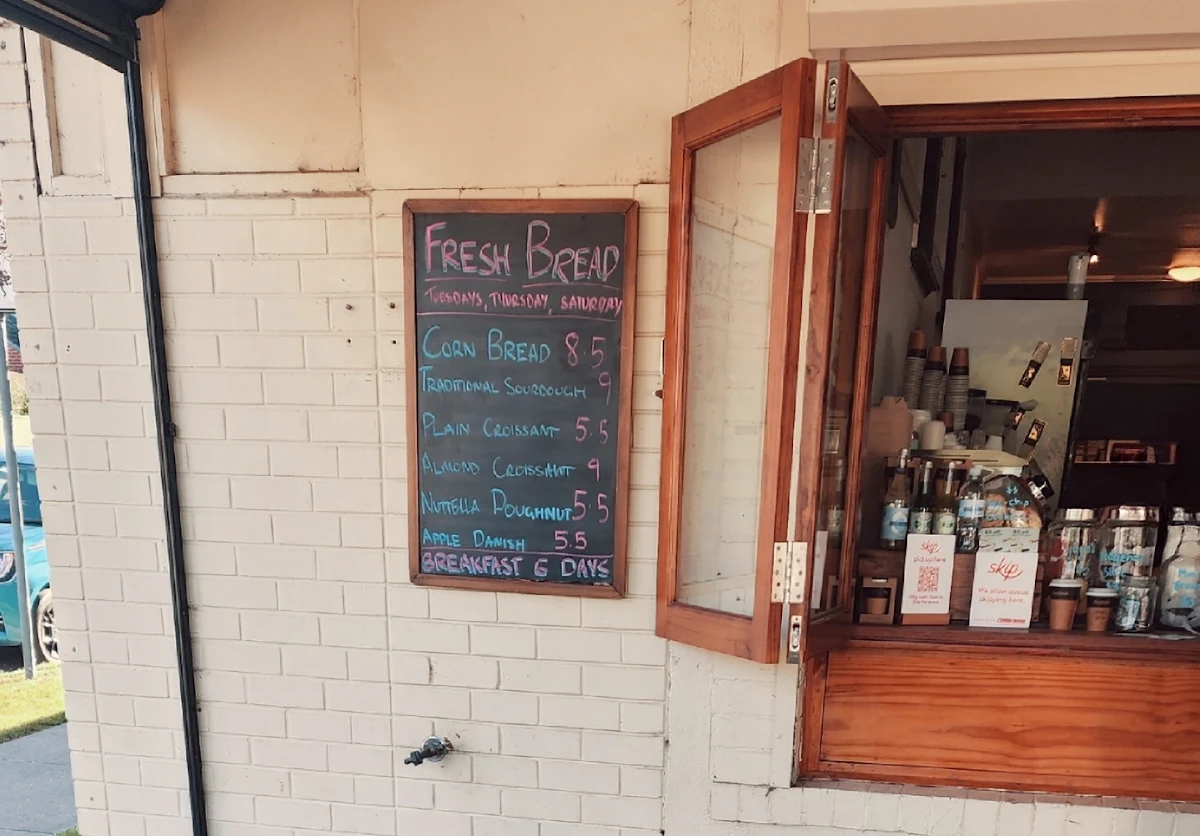 FRESH BREAD
TUESDAYS, THURSDAY, SATURDAY
CORN BREAD 8.5
TRADITIONAL SOURDOUGH 9
PLAIN CROISSANT 5.5
ALMOND CROISSANT 9
NUTTELLA DOUGHNUT 5.5
APPLE DANISH 5.5
BREAKFAST 6 DAYS
skip
skip
We allow queue
skipping here.